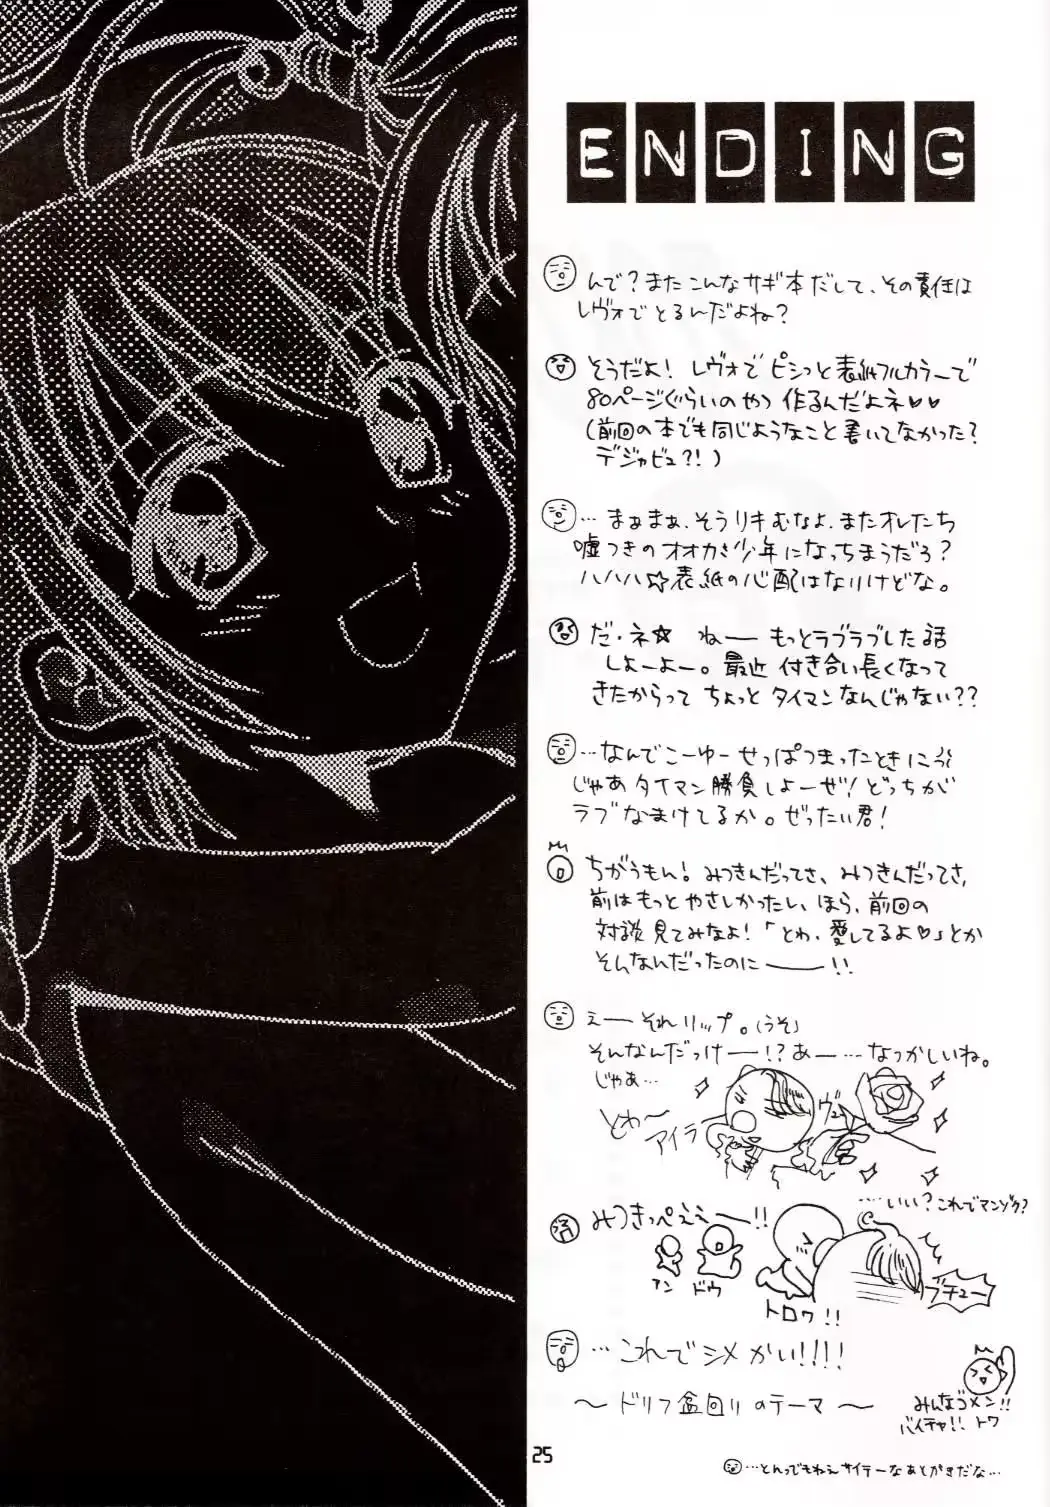 ENDING
んで?またこんなサギ本だして、その責任は
レヴォでとるんだよね?
そうだよ!レヴォでピシっと表紙フルカラーで
80ページぐらいのやつ作るんだよネ♡♡
(前回の本でも同じようなこと書いてなかった?
デジャビュ?!)
…まぁまぁ、そうリキむなよ、またオレたち
嘘つきのオオカミ少年になっちまうだろ?
ハハハ☆表紙の心配はなりけどな。
だ・ネ☆ねーもっとラブラブした話
しよーよー。最近付き合い長くなって
きたからってちょっとタイマンなんじゃない??
…なんでこーゆーせっぱつまったときに
じゃあタイマン勝負しよーぜ!どっちが
ラブなまけてるか。ぜったい君!
ちがうもん!みつきんだってさ、みつきんだってさ、
前はもっとやさしかったし、ほら、前回の
対談見てみなよ!「とわ、愛してるよ♡」とか
そんなんだったのに――!!
えーそれリップ。(うそ)
そんなんだっけー!?あー…なつかしいね。
じゃあ…
とわ〜
アイラ
ヴュ
…いい?これでマンゾク?
みつきっぺええー!!
アン
ドゥ
トロワ!!
ブチュー
…これでシメかい!!!!
〜ドリフ盆回りのテーマ〜
みんなゴメン!!
バイチャ!!トワ
25
…とんでもねぇサイテーなあとがきだな…